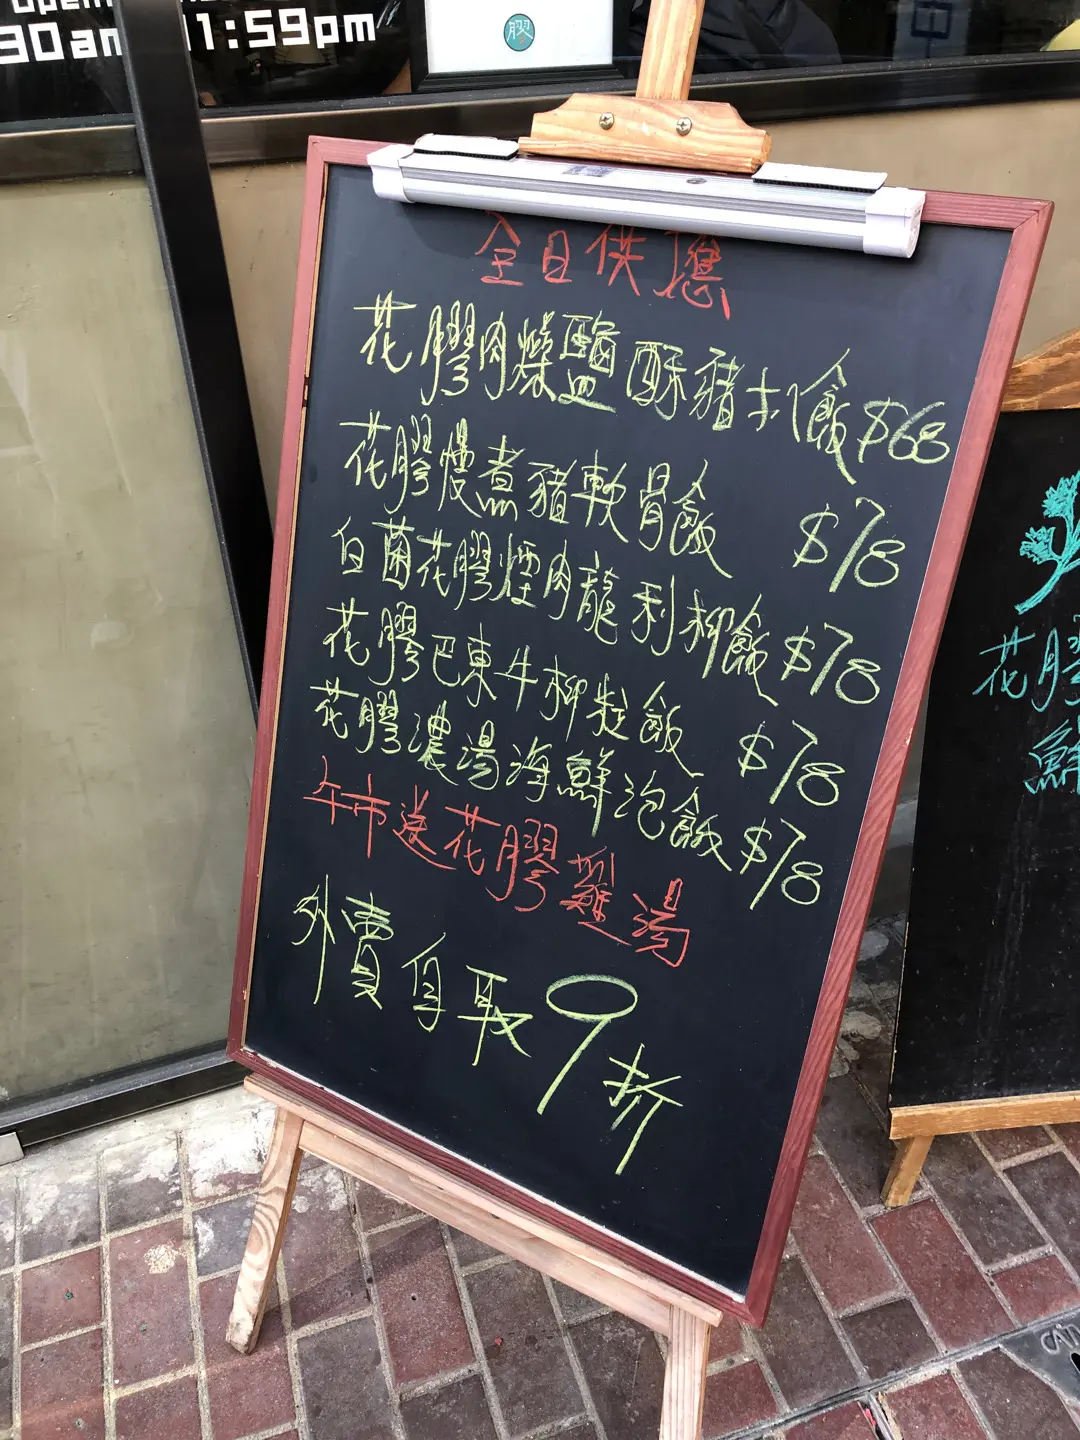 Open
30am
11:59pm
膠
全日供應
花膠肉燥鹽酥豬扒飯$68
花膠慢煮豬軟骨飯 $78
白菌花膠煙肉龍利柳飯$78
花膠巴東牛柳粒飯 $78
花膠濃湯海鮮泡飯$78
午市送花膠雞湯
外賣自取9折
花膠
鮮